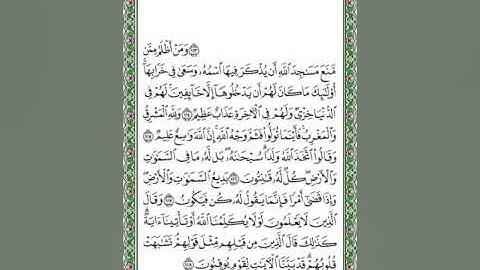 ﴿١١٣﴾ وَمَنْ أَظْلَمُ مِمَّن
مَّنَعَ مَسَٰجِدَ ٱللَّهِ أَن يُذْكَرَ فِيهَا ٱسْمُهُۥ وَسَعَىٰ فِى خَرَابِهَآ
أُو۟لَٰٓئِكَ مَا كَانَ لَهُمْ أَن يَدْخُلُوهَآ إِلَّا خَآئِفِينَ لَهُمْ فِى
ٱلدُّنْيَا خِزْىٌ وَلَهُمْ فِى ٱلْءَاخِرَةِ عَذَابٌ عَظِيمٌ ﴿١١٤﴾ وَلِلَّهِ ٱلْمَشْرِقُ
وَٱلْمَغْرِبُ فَأَيْنَمَا تُوَلُّوا۟ فَثَمَّ وَجْهُ ٱللَّهِ إِنَّ ٱللَّهَ وَٰسِعٌ عَلِيمٌ ﴿١١٥﴾
وَقَالُوا۟ ٱتَّخَذَ ٱللَّهُ وَلَدًا سُبْحَٰنَهُۥ بَل لَّهُۥ مَا فِى ٱلسَّمَٰوَٰتِ
وَٱلْأَرْضِ كُلٌّ لَّهُۥ قَٰنِتُونَ ﴿١١٦﴾ بَدِيعُ ٱلسَّمَٰوَٰتِ وَٱلْأَرْضِ
وَإِذَا قَضَىٰٓ أَمْرًا فَإِنَّمَا يَقُولُ لَهُۥ كُن فَيَكُونُ ﴿١١٧﴾ وَقَالَ
ٱلَّذِينَ لَا يَعْلَمُونَ لَوْلَا يُكَلِّمُنَا ٱللَّهُ أَوْ تَأْتِينَآ ءَايَةٌ
كَذَٰلِكَ قَالَ ٱلَّذِينَ مِن قَبْلِهِم مِّثْلَ قَوْلِهِمْ تَشَٰبَهَتْ
قُلُوبُهُمْ قَدْ بَيَّنَّا ٱلْءَايَٰتِ لِقَوْمٍ يُوقِنُونَ ﴿١١٨﴾